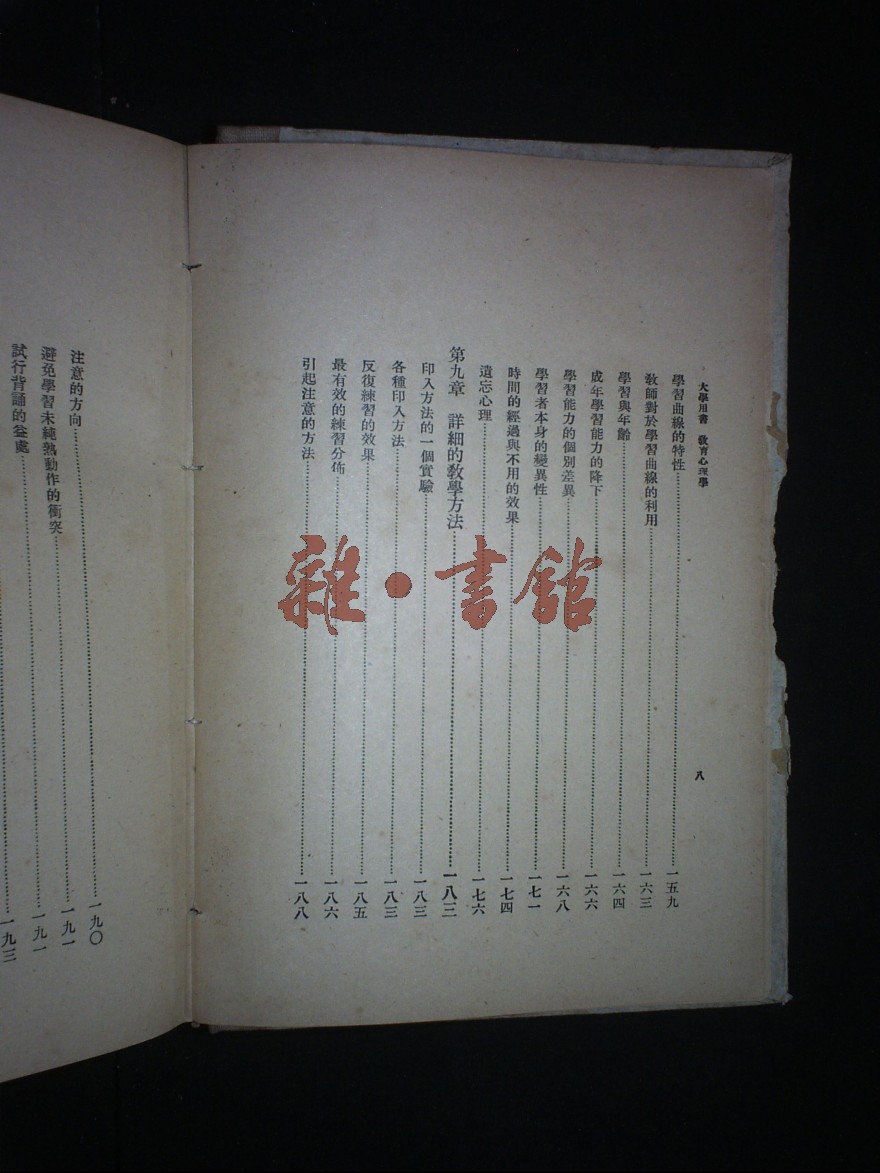 大學用書　敎育心理學
八
學習曲線的特性……一五九
敎師對於學習曲線的利用……一六三
學習與年齡……一六四
成年學習能力的降下……一六六
學習能力的個別差異……一六八
學習者本身的變異性……一七一
時間的經過與不用的效果……一七四
遺忘心理……一七六
第九章　詳細的敎學方法……一八三
印入方法的一個實驗……一八三
各種印入方法……一八三
反復練習的效果……一八五
最有效的練習分佈……一八六
引起注意的方法……一八八
注意的方向……一九〇
避免學習未純熟動作的衝突……一九一
試行背誦的益處……一九一
一九三
雜·書館